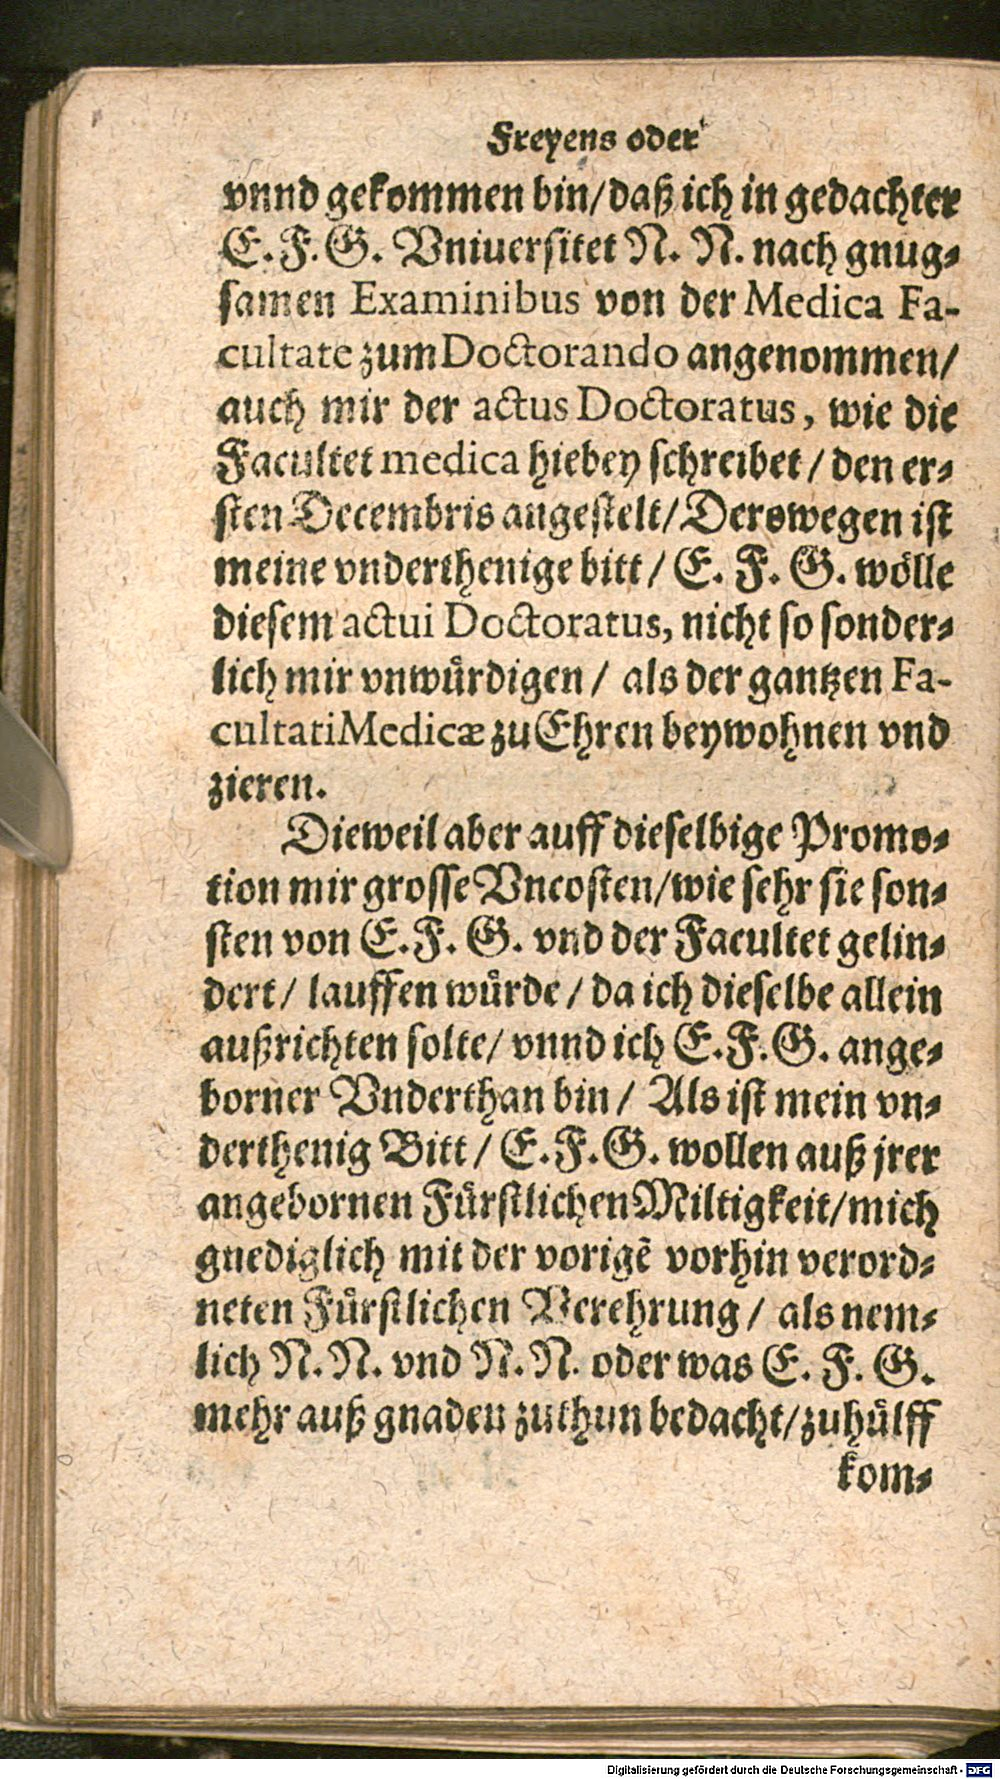 Freyens oder
vnnd gekommen bin/daß ich in gedachter
E. F. G. Vniuersitet N. N. nach gnug-
samen Examinibus von der Medica Fa-
cultate zum Doctorando angenommen/
auch mir der actus Doctoratus, wie die
Facultet medica hiebey schreibet / den er-
sten Decembris angestelt/ Derowegen ist
meine vnderthenige bitt / E. F. G. wölle
diesem actui Doctoratus, nicht so sonder-
lich mir vnwürdigen / als der gantzen Fa-
cultati Medicæ zu Ehren beywohnen vnd
zieren.
Dieweil aber auff dieselbige Promo-
tion mir grosse Vncosten/wie sehr sie son-
sten von E. F. G. vnd der Facultet gelin-
dert/ lauffen würde / da ich dieselbe allein
außrichten solte/ vnnd ich E. F. G. ange-
borner Vnderthan bin / Als ist mein vn-
derthenig Bitt / E. F. G. wollen auß jrer
angebornen Fürstlichen Miltigkeit/mich
gnediglich mit der vorigẽ vorhin verord-
neten Fürstlichen Verehrung / als nem-
lich N. N. vnd N. N. oder was E. F. G.
mehr auß gnaden zuthun bedacht/zuhülff
kom-
Digitalisierung gefördert durch die Deutsche Forschungsgemeinschaft - DFG